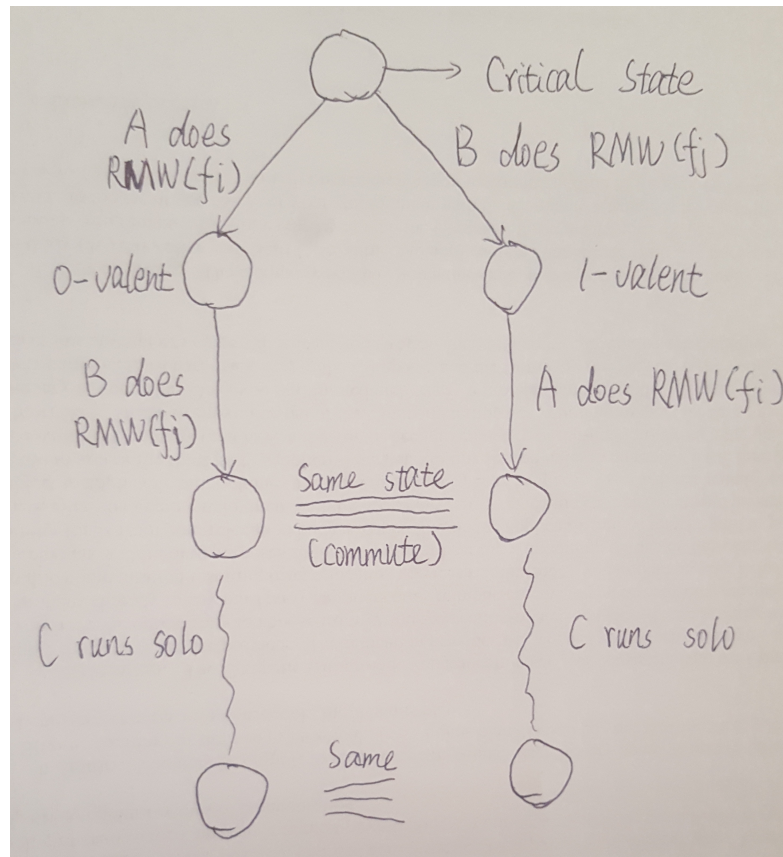 Critical State
A does
RMW(fi)
B does RMW(fj)
0-valent
1-valent
B does
RMW(fj)
A does RMW(fi)
Same state
(commute)
C runs solo
C runs solo
Same